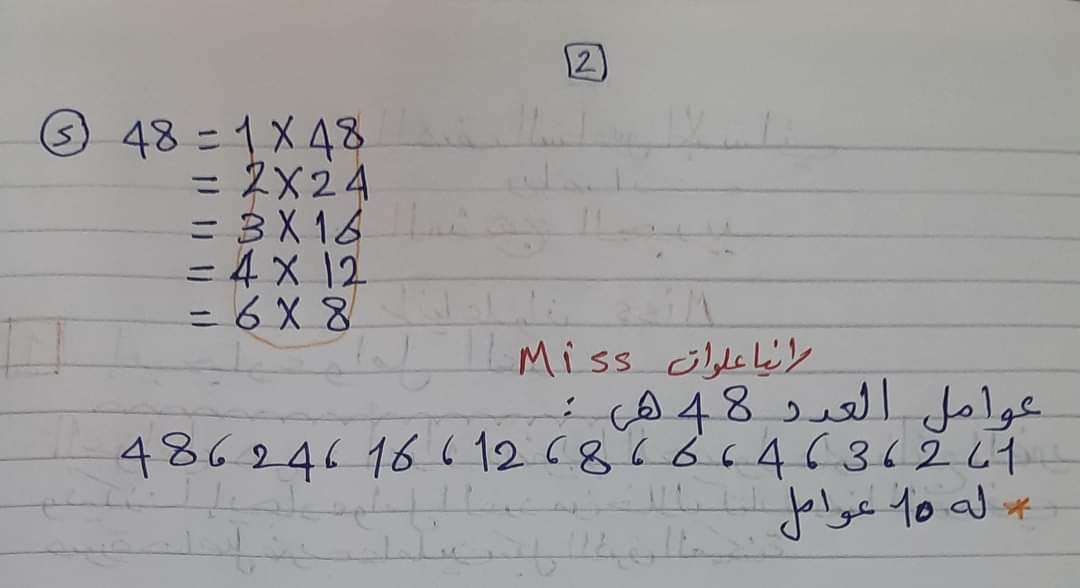 2
5 48 = 1 X 48
= 2 X 24
= 3 X 16
= 4 X 12
= 6 X 8
Miss رانيا علوان
عوامل العدد 48 هى :
1، 2، 3، 4، 6، 8، 12، 16، 24، 48
* له 10 عوامل